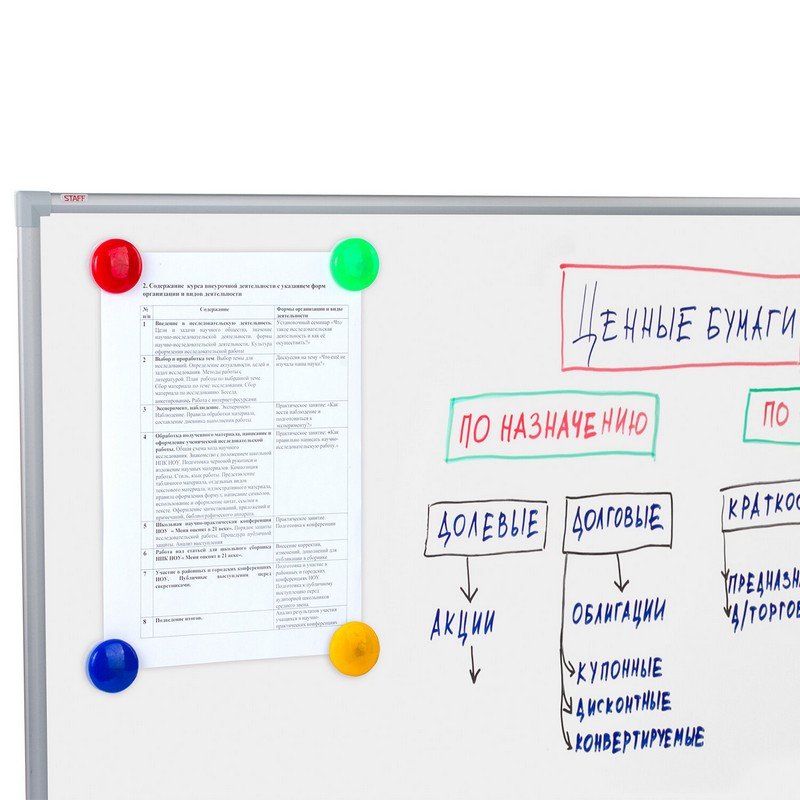 STAFF
2. Содержание курса внеурочной деятельности с указанием форм
организации и видов деятельности
№
п/п
Содержание
Формы организации и виды
деятельности
1
Введение в исследовательскую деятельность.
Цели и задачи научного общества, значение
научно-исследовательской деятельности, формы
научно-исследовательской деятельности. Культура
оформления исследовательской работы
Установочный семинар «Что
такое исследовательская
деятельность и как её
осуществить?»
2
Выбор и проработка тем. Выбор темы для
исследований. Определение актуальности, целей и
задач исследования. Методы работы с
литературой. План работы по выбранной теме.
Сбор материала по теме исследования.
Сбор материала по исследованию. Беседа,
анкетирование. Работа с интернет-ресурсами
Дискуссия на тему «Что ещё не
изучала наша наука?»
3
Эксперимент, наблюдение. Эксперимент.
Наблюдение. Правила обработки материала,
составление дневника выполнения работы
Практическое занятие: «Как
вести наблюдение и
подготовиться к
эксперименту?»
4
Обработка полученного материала, написание и
оформление ученической исследовательской
работы. Общая схема хода научного
исследования. Знакомство с положением школьной
НПК НОУ. Подготовка черновой рукописи и
изложение научных материалов. Композиция
работы. Стиль, язык работы. Представление
табличного материала, отдельных видов
текстового материала, иллюстративного материала,
правила оформления формул, написание символов,
использование и оформление цитат, ссылок в
тексте. Оформление заимствований, приложений и
примечаний, библиографического аппарата.
Практическое занятие: «Как
правильно написать научно-
исследовательскую работу?»
5
Школьная научно-практическая конференция
НОУ «Меня оценят в 21 веке». Порядок защиты
исследовательской работы. Процедура публичной
защиты. Анализ выступления
Практическое занятие.
Подготовка к конференции
6
Работа над статьей для школьного сборника
НПК НОУ «Меня оценят в 21 веке».
Внесение корректив,
изменений, дополнений для
публикации в сборнике
7
Участие в районных и городских конференциях
НОУ. Публичные выступления перед
сверстниками.
Подготовка и участие в
районных и городских
конференциях НОУ.
Подготовка к публичному
выступлению перед
аудиторией школьников
среднего звена.
8
Подведение итогов.
Анализ результатов участия
учащихся в научно-
практических конференциях
ЦЕННЫЕ БУМАГИ
ПО НАЗНАЧЕНИЮ
ПО
ДОЛЕВЫЕ
ДОЛГОВЫЕ
КРАТКОС
АКЦИИ
ОБЛИГАЦИИ
КУПОННЫЕ
ДИСКОНТНЫЕ
КОНВЕРТИРУЕМЫЕ
ПРЕДНАЗН
Д/ТОРГОВ